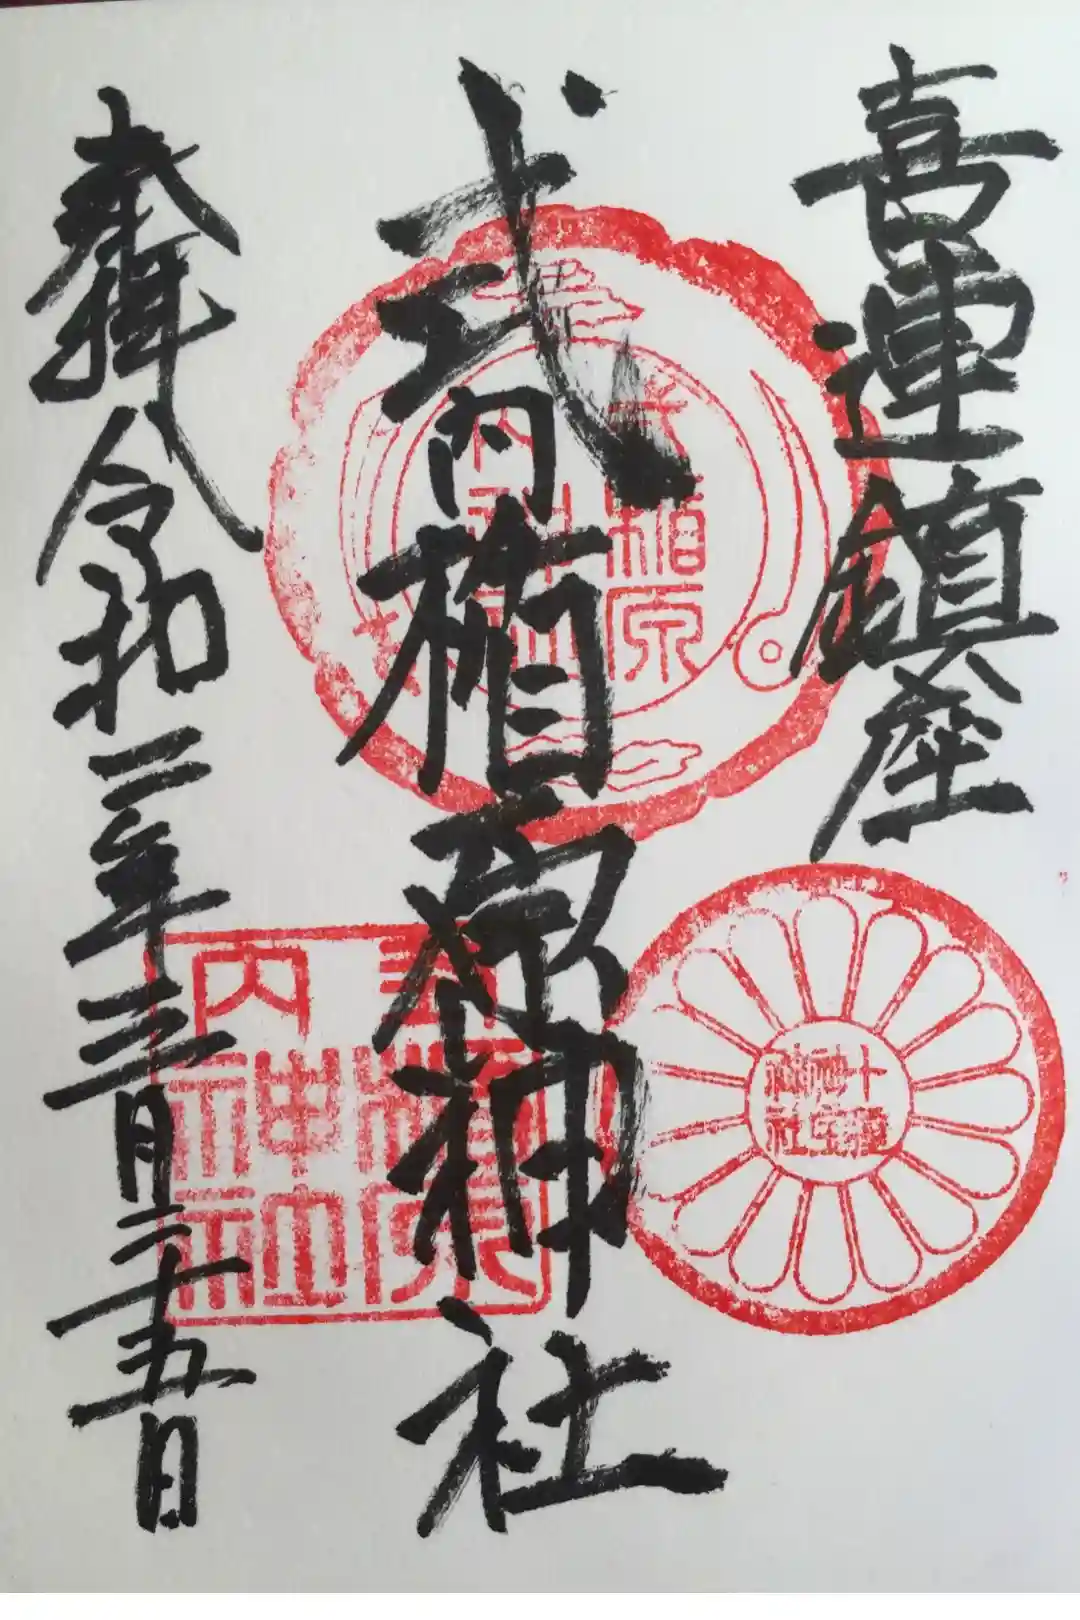 喜連鎮座
式内楯原神社
奉拝 令和二年三月二十五日
式楯原
内神社
式楯原
内神社
十種
神宝